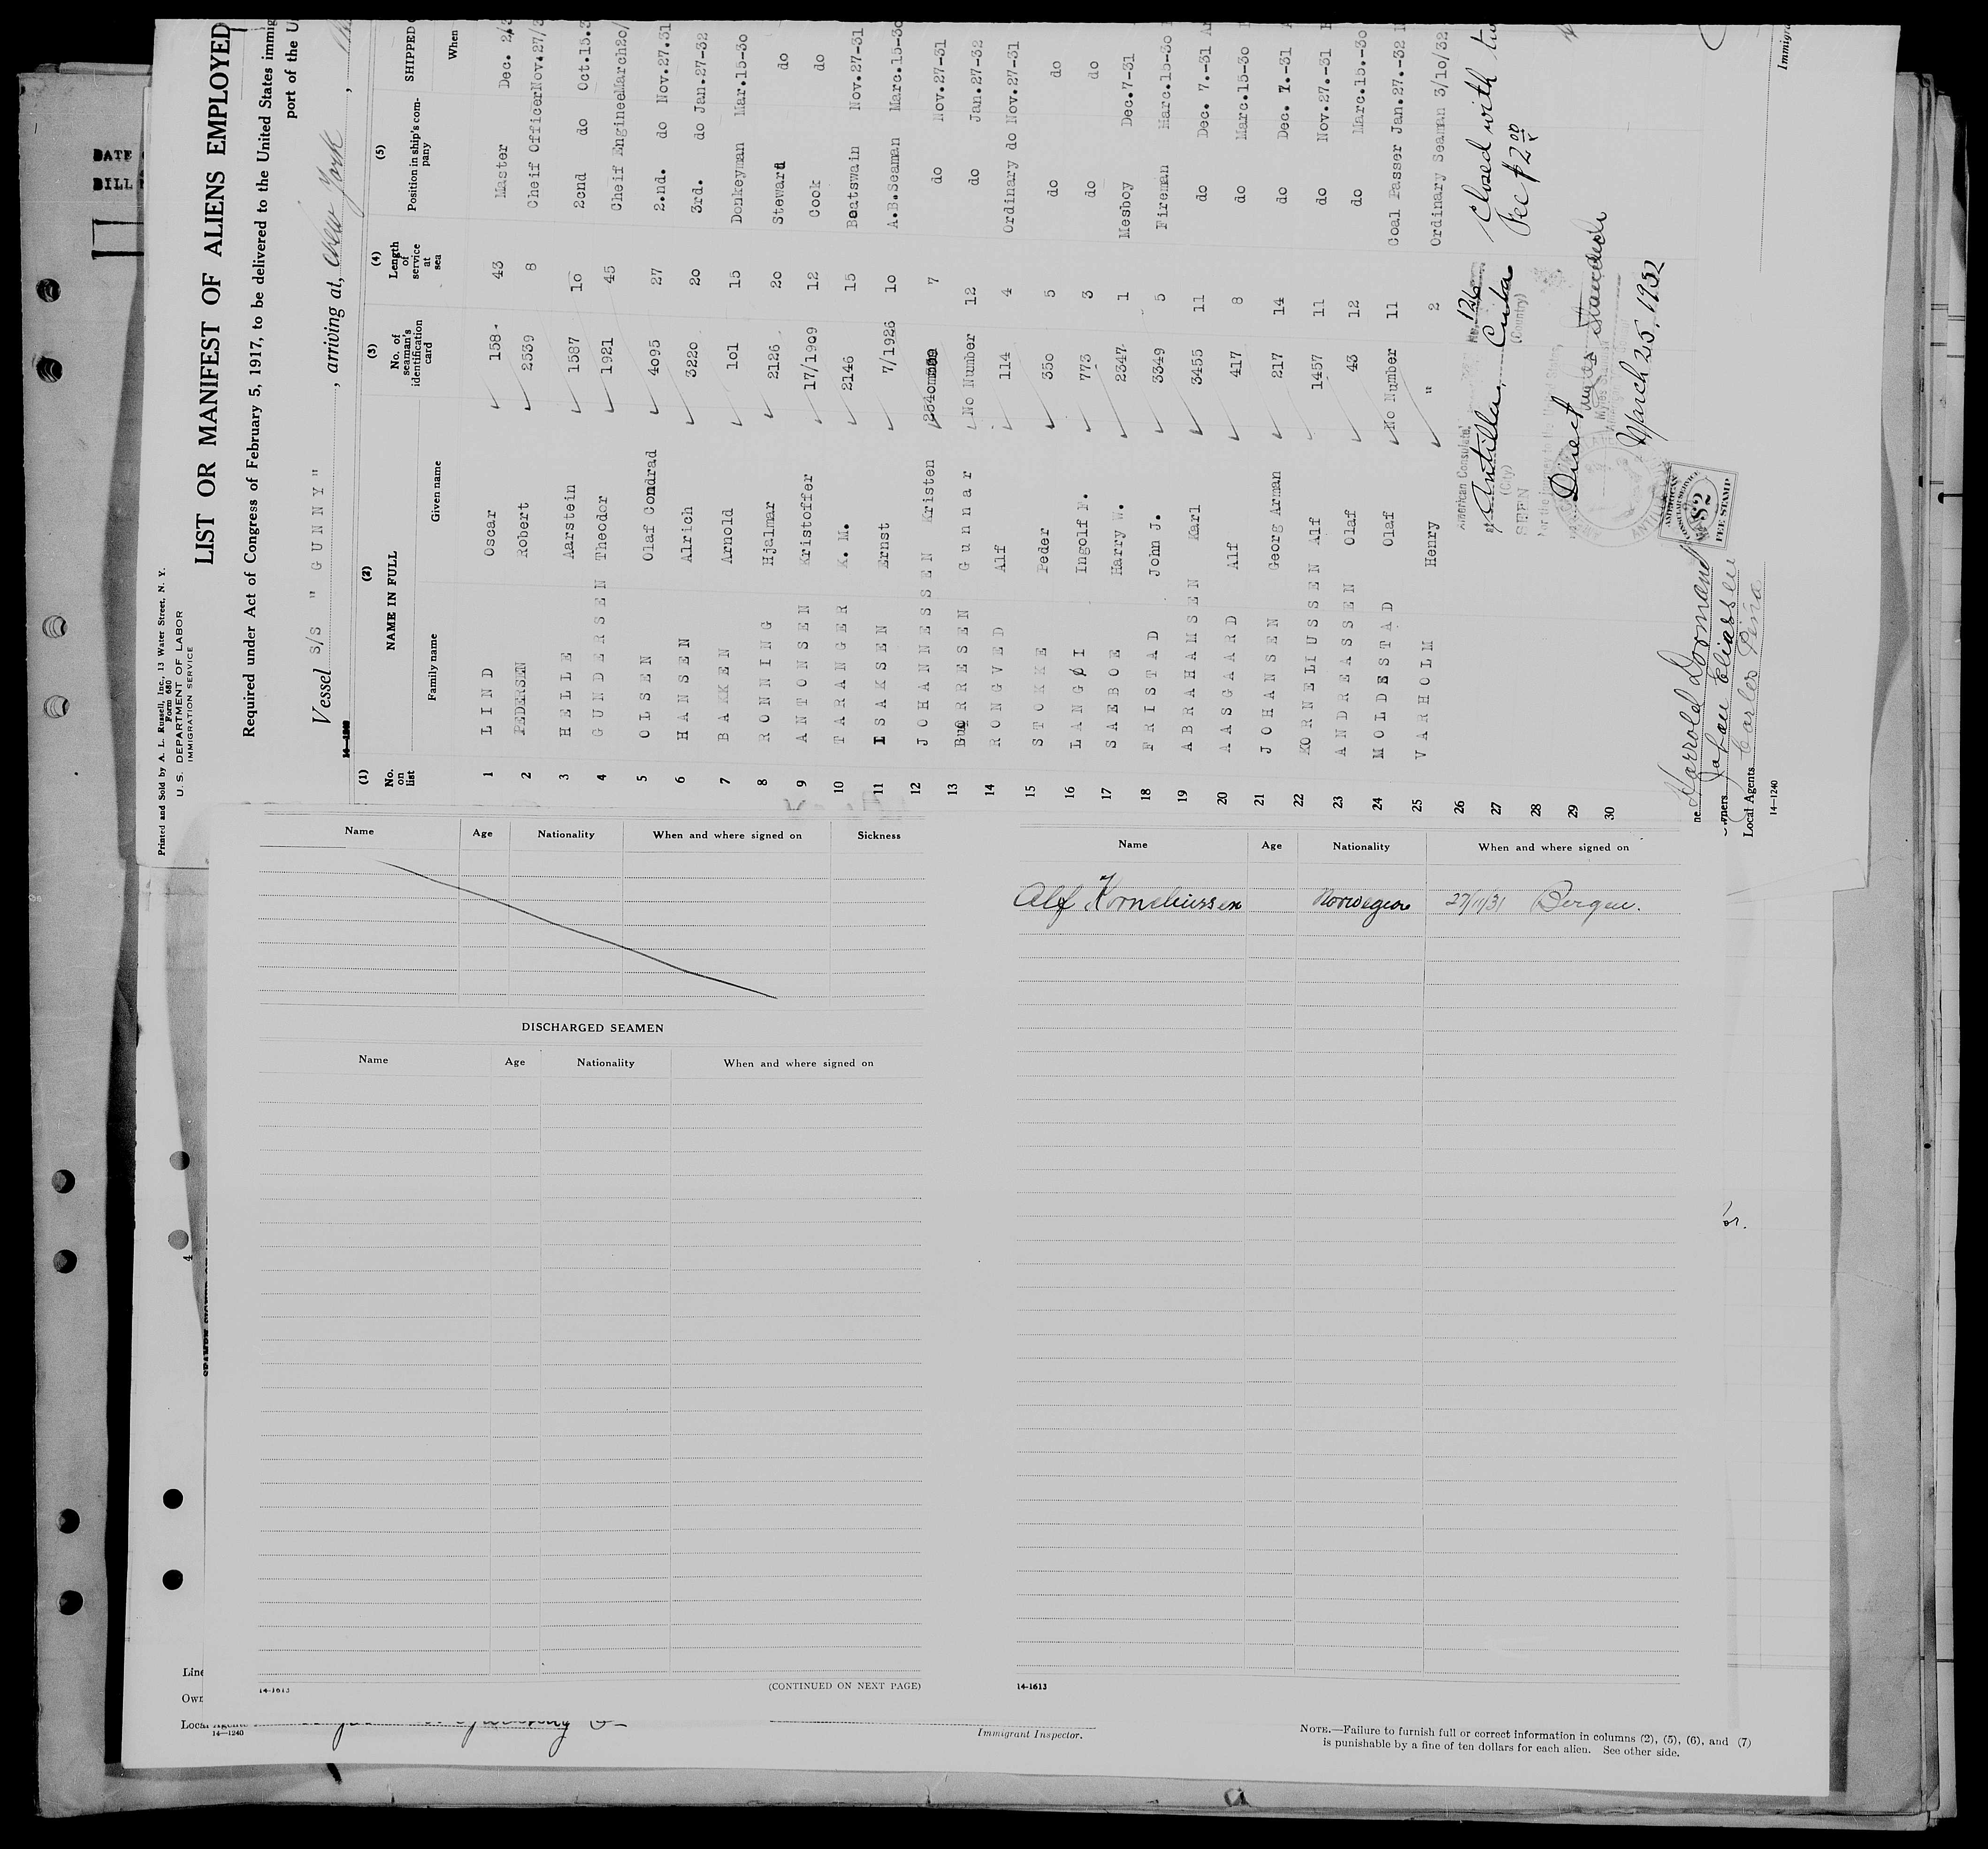 DATE
BILL
Printed and Sold by A. L. Russell, Inc., 13 Water Street, N. Y.
Form 680
U. S. DEPARTMENT OF LABOR
IMMIGRATION SERVICE
LIST OR MANIFEST OF ALIENS EMPLOYED
Required under Act of Congress of February 5, 1917, to be delivered to the United States immig
port of the U
Vessel S/S " G U N N Y " , arriving at, New York ,
14—1240
(1) (2) (3) (4) (5)
No. on list NAME IN FULL No. of seaman's identification card Length of service at sea Position in ship's company SHIPPED
Family name Given name When
1 LIND Oscar 158 43 Master Dec. 2/3
2 PEDERSEN Robert 2539 8 Cheif Officer Nov.27/3
3 HELLE Aarstein 1587 10 2cnd do Oct.15.3
4 GUNDERSEN Theodor 1921 45 Cheif Enginee March20/
5 OLSEN Olaf Condrad 4095 27 2.nd. do Nov.27.31
6 HANSEN Alrich 3220 20 3rd. do Jan.27-32
7 BAKKEN Arnold 101 15 Donkeyman Mar.15-30
8 RONNING Hjalmar 2126 20 Steward do
9 ANTONSEN Kristoffer 17/1909 12 Cook do
10 TARANGER K. M. 2146 15 Boatswain Nov.27-31
11 ISAKSEN Ernst 7/1926 10 A.B.Seaman Marc.15-30
12 JOHANNESSEN Kristen 7 do Nov.27-31
13 RRESEN Gunnar No Number 12 do Jan.27-32
14 RONGVED Alf 114 4 Ordinary do Nov.27-31
15 STOKKE Peder 350 5 do do
16 LANGØI Ingolf F. 773 3 do do
17 SAEBOE Harry W. 2347 1 Mesboy Dec.7-31
18 FRISTAD John J. 3349 5 Fireman Marc.15-30
19 ABRAHAMSEN Karl 3455 11 do Dec. 7.-31
20 AASGAARD Alf 417 8 do Marc.15-30
21 JOHANSEN Georg Arman 217 14 do Dec. 7.-31
22 KORNELIUSSEN Alf 1457 11 do Nov.27.-31
23 ANDREASSEN Olaf 43 12 do Marc.15.-30
24 MOLDESTAD Olaf No Number 11 Coal Passer Jan.27.-32
25 VARHOLM Henry " 2 Ordinary Seaman 3/10/32
26
27
28
29
30
American Consulate, No. 126
at Antilla, Cuba
(City) (Country)
SEEN
Direct
March 25, 1932
Closed with
Fee $2 00
AMERICAN CONSULAR SERVICE
$2
FEE STAMP
Harrold Dormand
Johan Eliassen
Local Agents Carlos Peña
14—1240
Immigra
Name Age Nationality When and where signed on Sickness
DISCHARGED SEAMEN
Name Age Nationality When and where signed on
14-1613
(CONTINUED ON NEXT PAGE)
Name Age Nationality When and where signed on
Alf Korneliussen Norwegian 27/11/31 Bergen.
14-1613
4
Line
Own
Local Agents
14—1240
Immigrant Inspector.
NOTE.—Failure to furnish full or correct information in columns (2), (5), (6), and (7)
is punishable by a fine of ten dollars for each alien. See other side.